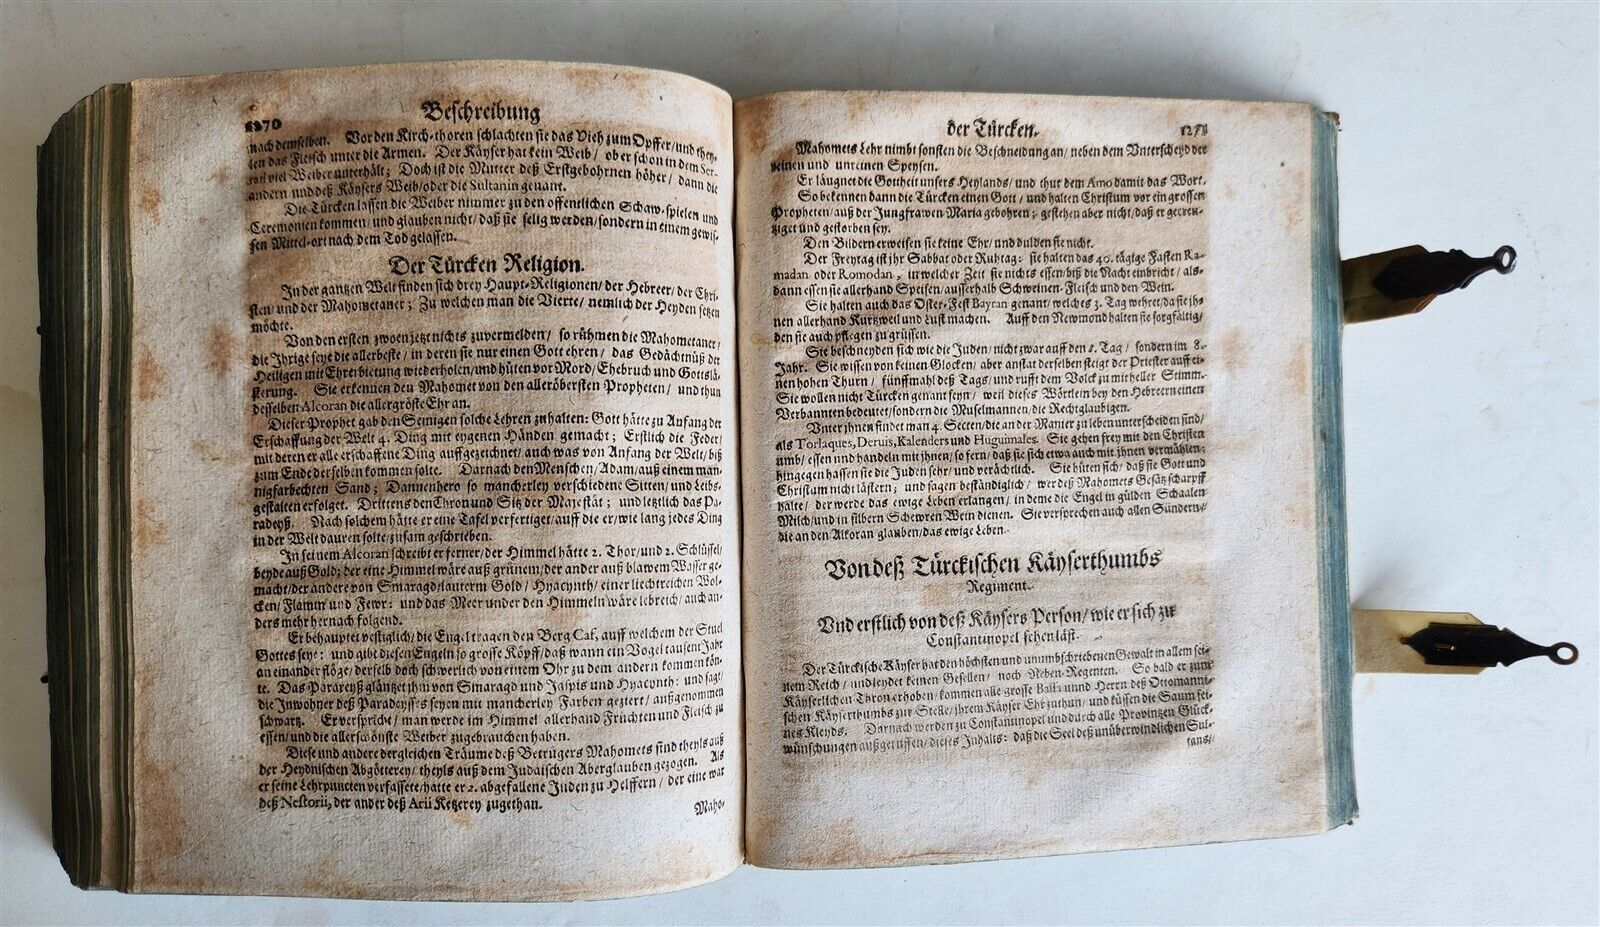 1270 Beschreibung
nach demselben. Vor den Kirch-thoren schlachten sie das Vieh zum Opffer/ und they-
len das Fleisch unter die Armen. Der Käyser hat kein Weib/ ober schon in dem Ser-
rail viel Weiber unterhält; Doch ist die Mutter deß Erstgebohrnen höher/ dann die
andern und deß Käysers Weib/ oder die Sultanin genant.
Die Türcken lassen die Weiber nimmer zu den offentlichen Schaw-spielen und
Ceremonien kommen/ und glauben nicht/ daß sie selig werden/ sondern in einem gewis-
sen Mittel-ort nach dem Tod gelassen.
Der Türcken Religion.
In der gantzen Welt finden sich drey Haupt-Religionen/ der Hebreer/ der Chri-
sten/ und der Mahometaner; Zu welchen man die Vierte/ nemlich der Heyden setzen
möchte.
Von den ersten zwoen jetzt nichts zuvermelden/ so rühmen die Mahometaner/
die Ihrige seye die allerbeste/ in deren sie nur einen Gott ehren/ das Gedächtnüß der
Heiligen mit Ehrerbietung wiederholen/ und hüten vor Mord/ Ehebruch und Gottslä-
sterung. Sie erkennen den Mahomet von den alleröbersten Propheten/ und thun
desselben Alcoran die allergröste Ehr an.
Dieser Prophet gab den Seinigen solche Lehren zu halten: Gott hätte zu Anfang der
Erschaffung der Welt 4. Ding mit eygenen Händen gemacht; Erstlich die Feder/
mit deren er alle erschaffene Ding auffgezeichnet/ auch was von Anfang der Welt/ biß
zum Ende derselben kommen solte. Darnach den Menschen/ Adam/ auß einem man-
nigfarbechten Sand; Dannenhero so mancherley verschiedene Sitten/ und Leibs-
gestalten erfolget. Drittens den Thron und Sitz der Majestät; und letztlich das Pa-
radeyß. Nach solchem hätte er eine Tafel verfertiget/ auff die er/ wie lang jedes Ding
in der Welt dauren solte/ zusam geschrieben.
In seinem Alcoran schreibt er ferner/ der Himmel hätte 2. Thor/ und 2. Schlüssel/
beyde auß Gold; der eine Himmel wäre auß grünem/ der ander auß blawem Wasser ge-
macht/ der andere von Smaragd/ lauterm Gold/ Hyacynth/ einer liechtreichen Wol-
cken/ Flamm und Fewr: und das Meer under den Himmeln wäre lebreich/ auch an-
ders mehr hernach folgend.
Er behauptet vestiglich/ die Engel tragen den Berg Caf, auff welchem der Stuel
Gottes seye; und gibt diesen Engeln so grosse Köpff/ daß wann ein Vogel tausent Jahr
an einander flöge/ derselb doch schwerlich von einem Ohr zu dem andern kommen kön-
te. Das Parareyß gläntzet ihm von Smaragd und Jaspis und Hyacynth: und sagt/
die Inwohner deß Paradeyses seyen mit mancherley Farben geziert/ außgenommen
schwartz. Er verspricht/ man werde im Himmel allerhand Früchten und Fleisch zu
essen/ und die allerschönste Weiber zugebrauchen haben.
Diese und andere dergleichen Träume deß Betrügers Mahomets sind theyls auß
der Heydnischen Abgötterey/ theyls auß dem Judaischen Aberglauben gezogen. Als
er seine Lehrpuncten verfassete/ hatte er 2. abgefallene Juden zu Helffern/ der eine war
deß Nestorii, der ander deß Arii Ketzerey zugethan.
Maho-
der Türcken. 1271
Mahomets Lehr nimbt sonsten die Beschneidung an/ neben dem Vnterscheyd der
reinen und unreinen Speysen.
Er läugnet die Gottheit unsers Heylands/ und thut dem Amo damit das Wort.
So bekennen dann die Türcken einen Gott/ und halten Christum vor ein grossen
Propheten/ auß der Jungfrawen Maria gebohren; gestehen aber nicht/ daß er gecreu-
tziget und gestorben sey.
Den Bildern erweisen sie keine Ehr/ und dulden sie nicht.
Der Freytag ist ihr Sabbat oder Ruhtag: sie halten das 40. tägige Fasten Ra-
madan oder Romodan, in welcher Zeit sie nichts essen/ biß die Nacht einbricht/ als-
dann essen sie allerhand Speisen/ ausserhalb Schweinen-Fleisch und den Wein.
Sie halten auch das Oster-Fest Bayran genant/ welches 3. Tag wehret/ da sie ih-
nen allerhand Kurtzweil und Lust machen. Auff den Newmond halten sie sorgfältig/
den sie auch pflegen zu grüssen.
Sie beschneyden sich wie die Juden/ nicht zwar auff den 8. Tag/ sondern im 8.
Jahr. Sie wissen von keinen Glocken/ aber anstat derselben steigt der Priester auff ei-
nen hohen Thurn/ fünffmahl deß Tags/ und rufft dem Volck zu mit heller Stimm.
Sie wollen nicht Türcken genant seyn/ weil dieses Wörtlein bey den Hebreern einen
Verbannten bedeutet/ sondern die Muselmannen/ die Rechtglaubigen.
Vnter ihnen findet man 4. Secten/ die an der Manier zu leben unterscheiden sind/
als Torlaques, Deruis, Kalenders und Huguimales. Sie gehen frey mit den Christen
umb/ essen und handeln mit ihnen/ so fern/ daß sie sich etwa auch mit ihnen vermählen;
hingegen hassen sie die Juden sehr/ und verächtlich. Sie hüten sich/ daß sie Gott und
Christum nicht lästern; und sagen beständiglich/ wer deß Mahomets Gesätz scharpff
halte/ der werde das ewige Leben erlangen/ in deme die Engel in gülden Schaalen
Milch/ und in silbern Schewren Wein dienen. Sie versprechen auch allen Sündern/
die an den Alkoran glauben/ das ewige Leben.
Von deß Türckischen Käyserthumbs
Regiment.
Vnd erstlich von deß Käysers Person/ wie er sich zu
Constantinopel sehen läst.
Der Türckische Käyser hat den höchsten und unumbschriebenen Gewalt in allem sei-
nem Reich/ und leydet keinen Gesellen/ noch Neben-Regenten. So bald er zum
Käyserlichen Thron erhoben/ kommen alle grosse Bassa unnd Herrn deß Ottomanni-
schen Käyserthumbs zur Stelle/ ihrem Käyser Ehr zuthun/ und küssen die Saum sei-
nes Kleyds. Darnach werden zu Constantinopel und durch alle Provintzen Glück-
wünschungen außgeruffen/ dieses Inhalts: daß die Seel deß unüberwindlichen Sul-
tans/